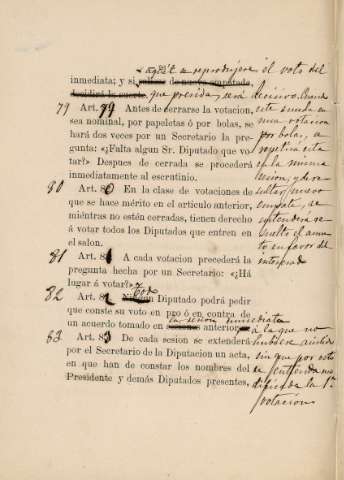 aquél se reprodujere el voto del
inmediata; y si saliere de nuevo empatada,
decidirá la suerte, que presida, será decisivo. Cuando
79 Art. 79 Antes de cerrarse la votacion, este suceda en
sea nominal, por papeletas ó por bolas, se una votacion
hará dos veces por un Secretario la pre- por bolas, se
gunta: «¿Falta algun Sr. Diputado que vo- repetirá esta
tar?» Despues de cerrada se procederá en la misma
inmediatamente al escrutinio. sesion, y de re-
80 Art. 80 En la clase de votaciones de sultar nuevo
que se hace mérito en el artículo anterior, empate, se
miéntras no estén cerradas, tienen derecho entenderá re-
á votar todos los Diputados que entren en suelto el asun-
el salon. to en favor del
81 Art. 81 A cada votacion precederá la interesado
pregunta hecha por un Secretario: «¿Há
lugar á votar?»
Todo
82 Art. 82 Ningun Diputado podrá pedir
que conste su voto en pro ó en contra de
la sesion inmediata
un acuerdo tomado en anterior á la que no
83 Art. 83 De cada sesion se extenderá hubiese asistido
por el Secretario de la Diputacion un acta, sin que por esto
en que han de constar los nombres del se entienda mo
Presidente y demás Diputados presentes, dificada la 1ª
votacion